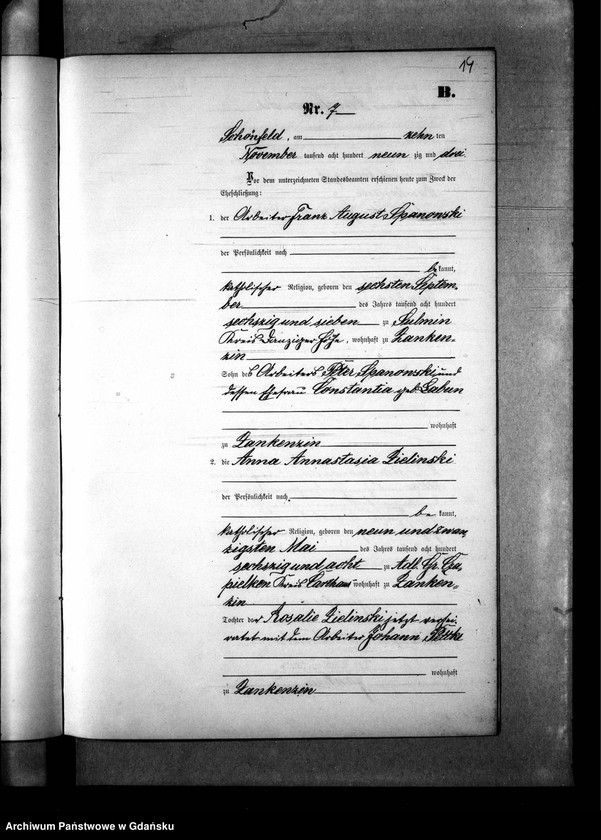 14
B.
Nr. 7
Schönfeld, am zehn ten
November tausend acht hundert neun zig und drei.
Vor dem unterzeichneten Standesbeamten erschienen heute zum Zweck der
Eheschließung:
1. der Arbeiter Franz August Spanowski
der Persönlichkeit nach
be kannt,
katholischer Religion, geboren den sechsten Septem-
ber des Jahres tausend acht hundert
sechszig und sieben zu Sulmin
Kreis Danziger Höhe, wohnhaft zu Zanken-
zin
Sohn des Arbeiters Peter Spanowski und
dessen Ehefrau Constantia geb. Labun
wohnhaft
zu Zankenzin
2. die Anna Annastasia Zielinski
der Persönlichkeit nach
be kannt,
katholischer Religion, geboren den neun und zwan
zigsten Mai des Jahres tausend acht hundert
sechszig und acht zu Adl. Gr. Cza
pielken Kreis Carthaus wohnhaft zu Zanken-
zin
Tochter der Rosalie Zielinski jetzt verhei-
ratet mit dem Arbeiter Johann
wohnhaft
zu Zankenzin
Archiwum Państwowe w Gdańsku